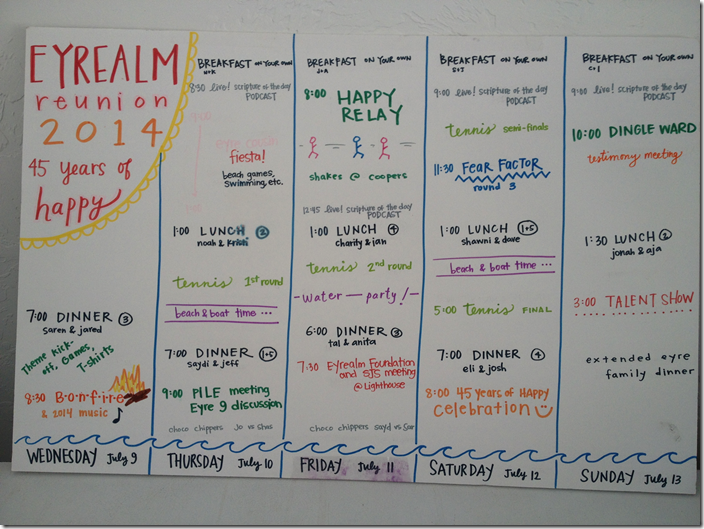 EYREALM
reunion
2014
45 years of
happy
7:00 DINNER ③
saren & jared
Theme Kick-
off, Games,
T-shirts
8:30 Bonfire
& 2014 music
WEDNESDAY July 9
BREAKFAST ON YOUR OWN
8:30 live! scripture of the day
PODCAST
fiesta!
beach games,
swimming, etc.
1:00 LUNCH
noah & Kristi
tennis 1st round
beach & boat time ...
7:00 DINNER (1+5)
saydi & jeff
9:00 PILE meeting
Eyre 9 discussion
choco chippers Jo vs Shas
THURSDAY July 10
BREAKFAST ON YOUR OWN
J+A
8:00 HAPPY
RELAY
shakes @ coopers
12:45 live! scripture of the day
PODCAST
1:00 LUNCH ④
charity & ian
tennis 2nd round
-water-party!-
6:00 DINNER ③
tal & anita
7:30 Eyrealm Foundation
and SJS meeting
@ Lighthouse
choco chippers sayd vs Sar
FRIDAY July 11
BREAKFAST ON YOUR OWN
S+J
9:00 live! scripture of the day
PODCAST
tennis semi-finals
11:30 FEAR FACTOR
round 3
1:00 LUNCH (1+5)
shawni & dave
beach & boat time ...
5:00 tennis FINAL
7:00 DINNER ④
eli & josh
8:00 45 years of HAPPY
celebration
SATURDAY July 12
BREAKFAST ON YOUR OWN
C+I
9:00 live! scripture of the day
PODCAST
10:00 DINGLE WARD
testimony meeting
1:30 LUNCH ②
jonah & aja
3:00 TALENT SHOW
extended eyre
family dinner
SUNDAY July 13